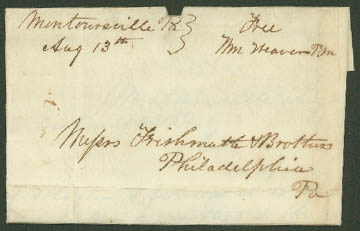 Montoursville Pa } Free
Aug 13th. Wm Weaver P.m
Messrs Frishmuth & Brothers
Philadelphia
Pa